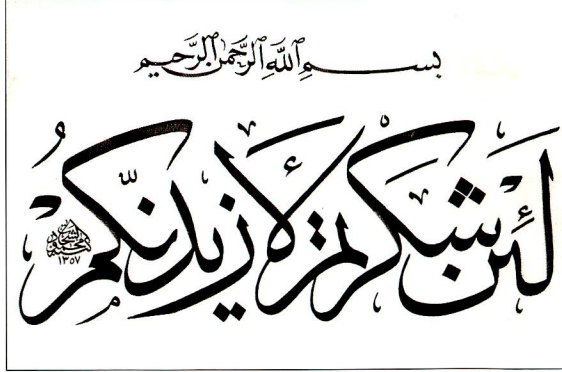 بسم ٱللَّه ٱلرَّحمن ٱلرَّحيم
لَئِن شَكَرتم لأَزيدنّكمُ
١٣٥٧